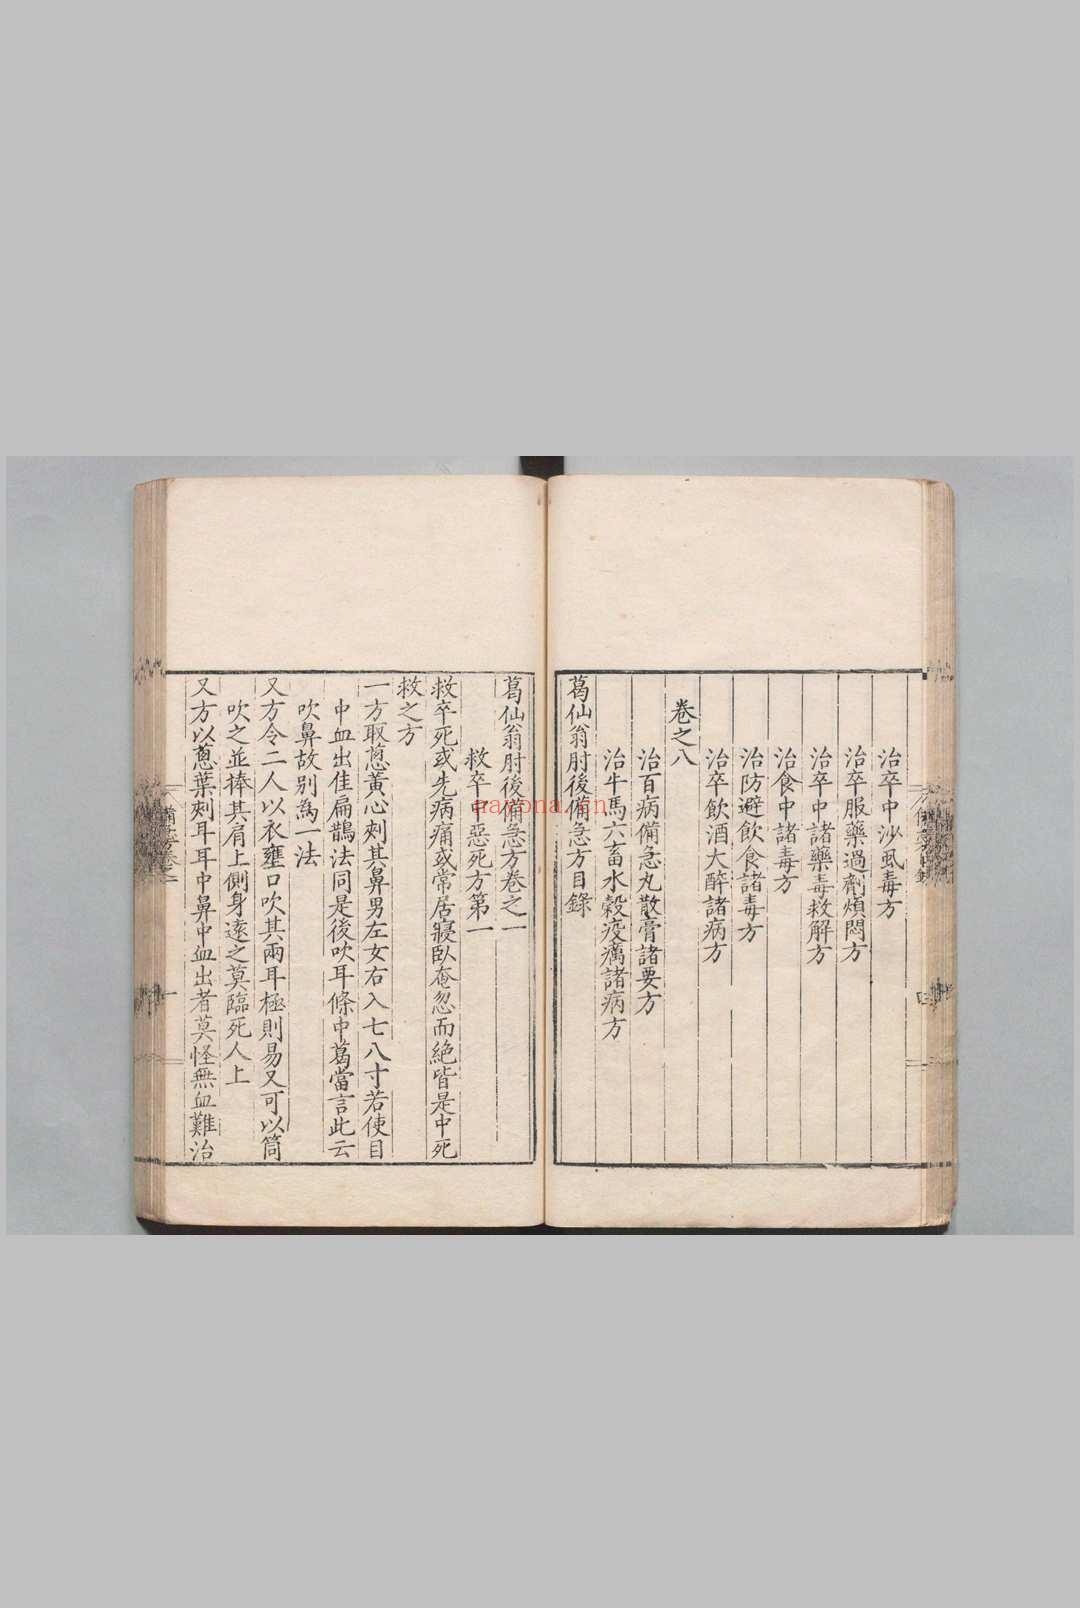 治卒中沙虱毒方
治卒服藥過劑煩悶方
治卒中諸藥毒救解方
治食中諸毒方
治防避飲食諸毒方
治卒飲酒大醉諸病方
卷之八
治百病備急丸散膏諸要方
治牛馬六畜水穀疫癘諸病方
葛仙翁肘後備急方目錄
葛仙翁肘後備急方卷之一
救卒中惡死方第一
救卒死或先病痛或常居寢臥奄忽而絕皆是中死
救之方
一方取葱黃心刾其鼻男左女右入七八寸若使目
中血出佳扁鵲法同是後吹耳條中葛當言此云
吹鼻故别為一法
又方令二人以衣壅口吹其兩耳極則易又可以筒
吹之並捧其肩上側身遠之莫臨死人上
又方以葱葉刾耳耳中鼻中血出者莫怪無血難治
nayona.cn